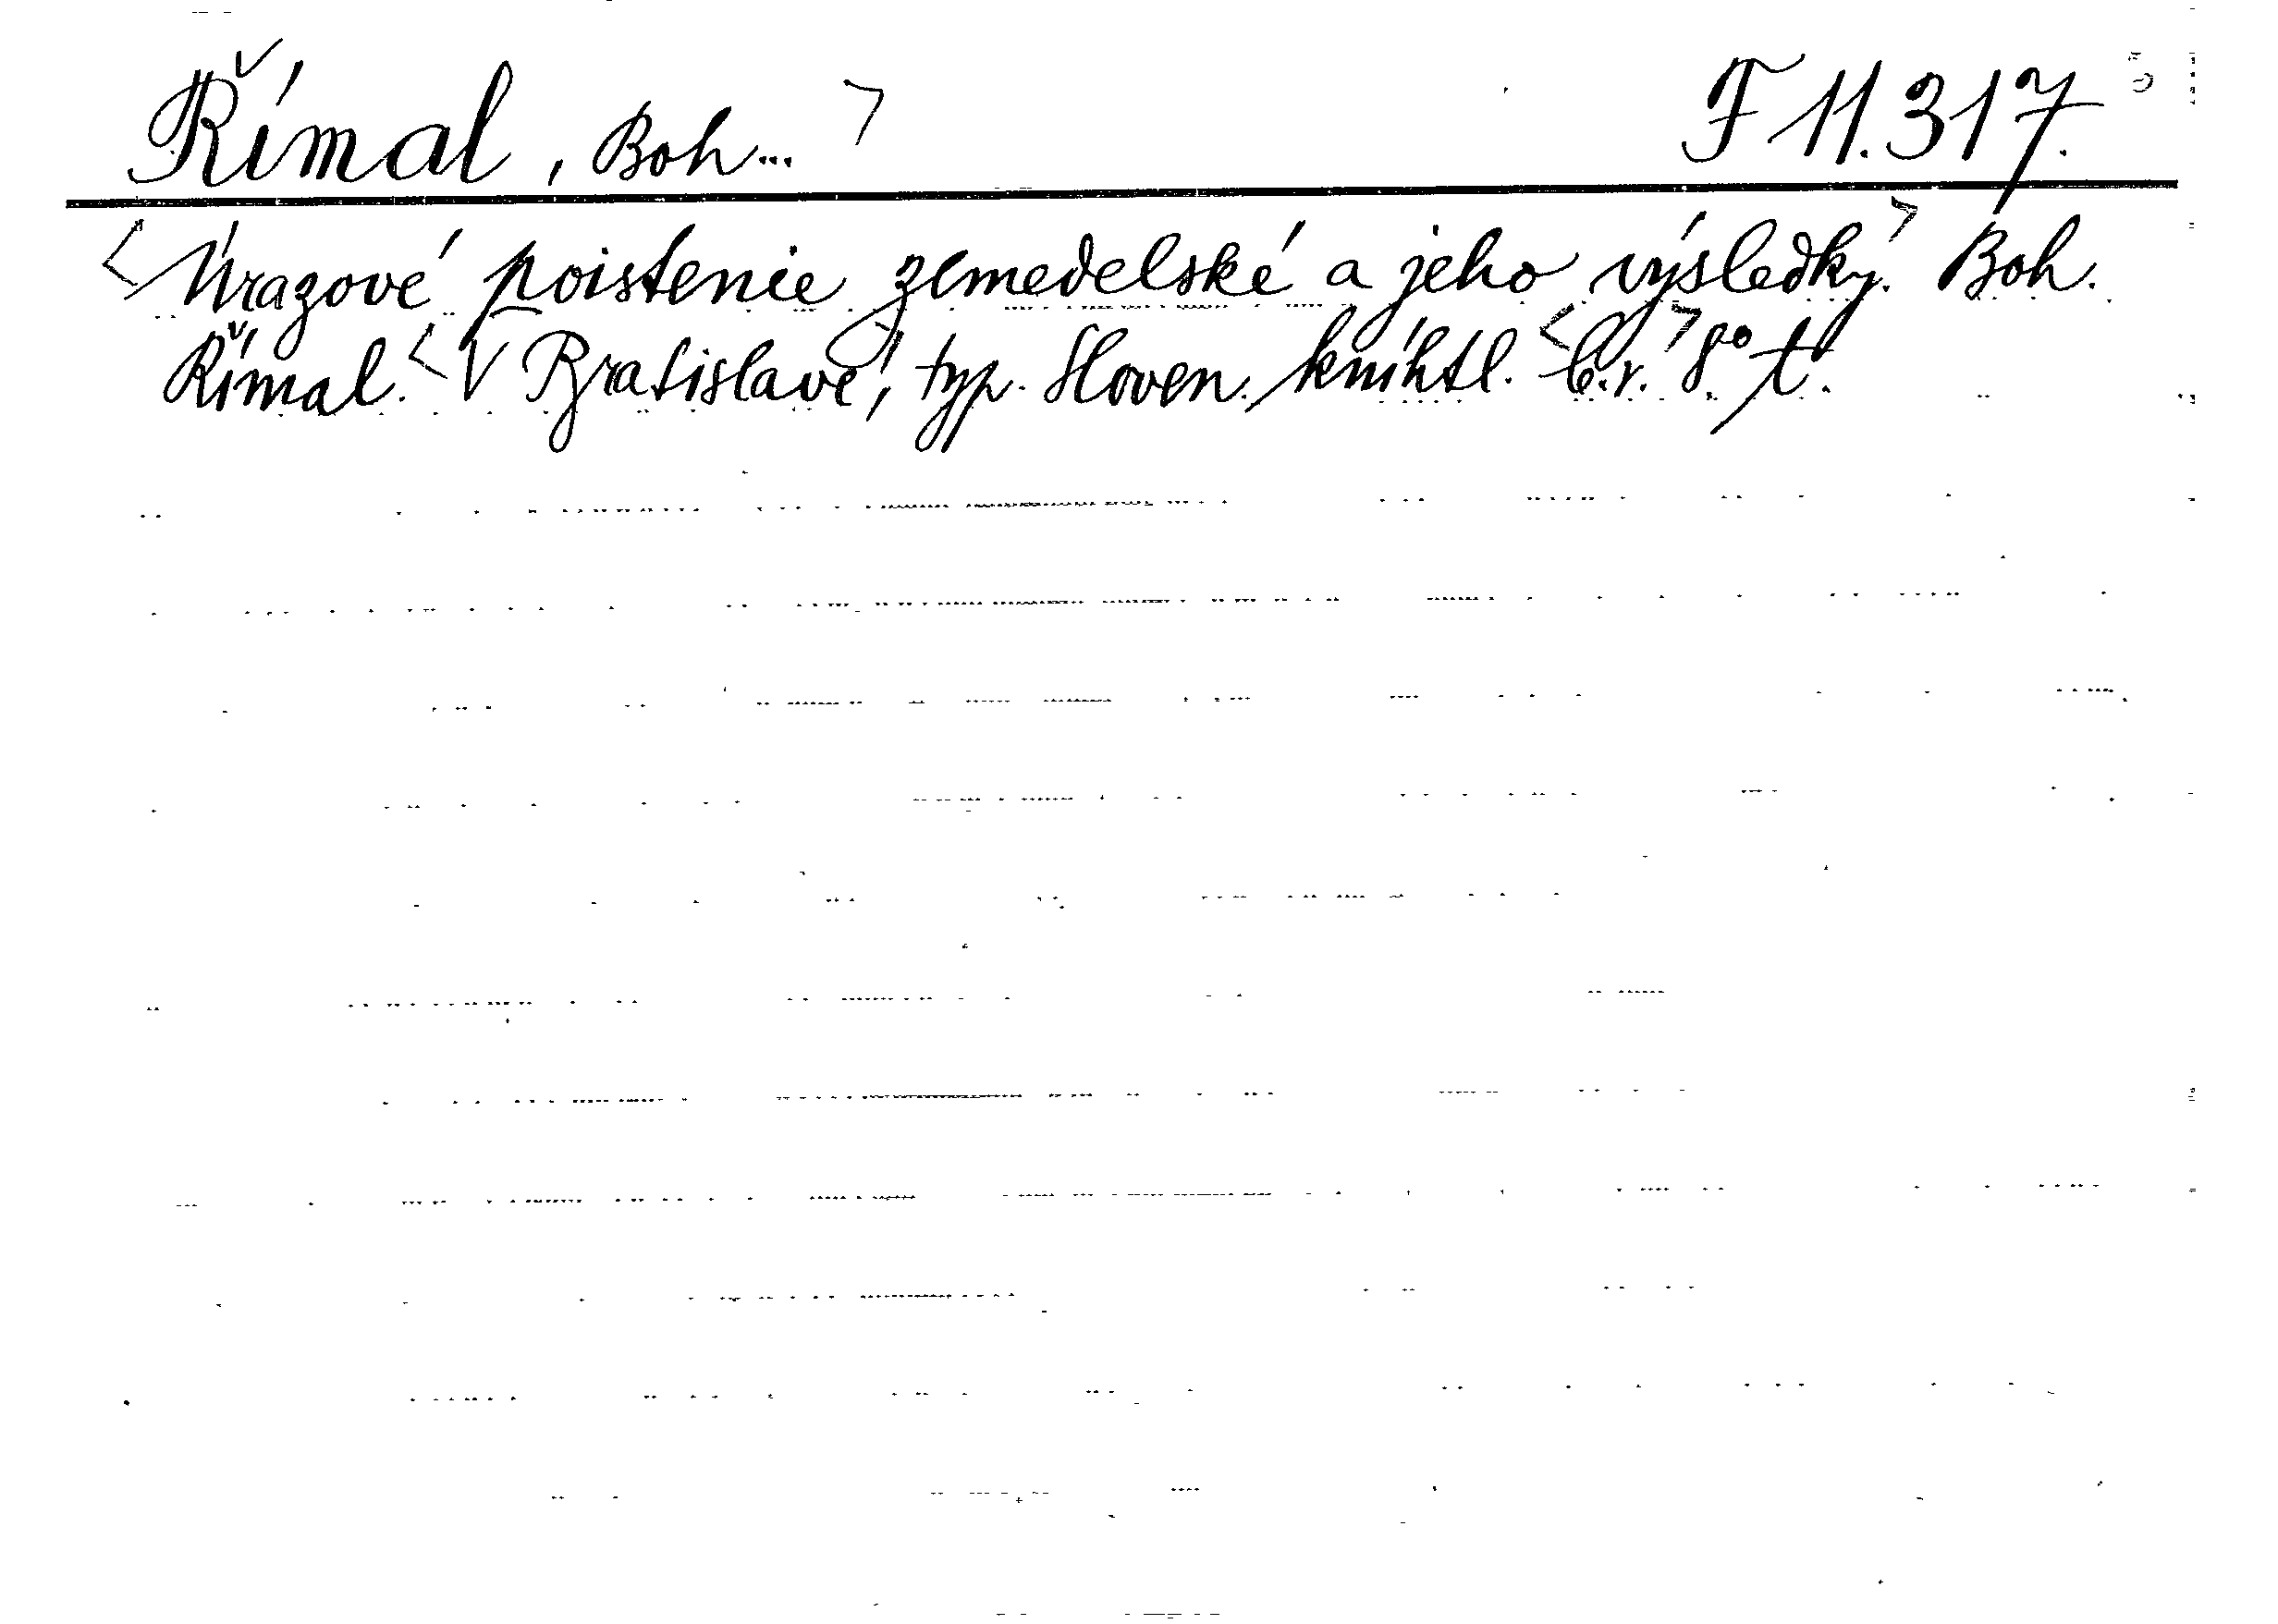 Římal, Boh... > F 11.317.
<Úrazové poistenie zemedelské a jeho výsledky.> Boh.
Římal. <V Bratislave, typ. Sloven. kníhtl. <b.r.> 8° t.